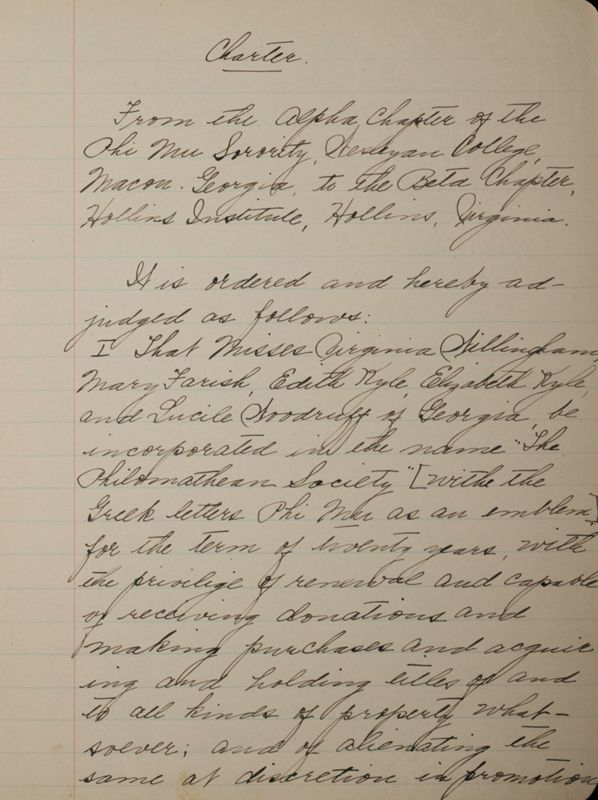 Charter.
From the Alpha Chapter of the
Phi Mu Sorority, Wesleyan College,
Macon. Georgia, to the Beta Chapter,
Hollins Institute, Hollins, Virginia.
It is ordered and hereby ad-
judged as follows:
I That Misses Virginia Willingham,
Mary Farish, Edith Kyle, Elizabeth Kyle,
and Lucile Woodruff of Georgia, be
incorporated in the name "The
Philomathean Society" [withe the
Greek letters Phi Mu as an emblem]
for the term of twenty years, with
the privilige of renewal and capable
of receiving donations and
making purchases and acquir
ing and holding titles of and
to all kinds of property what-
soever; and of alienating the
same at discretion in promotion